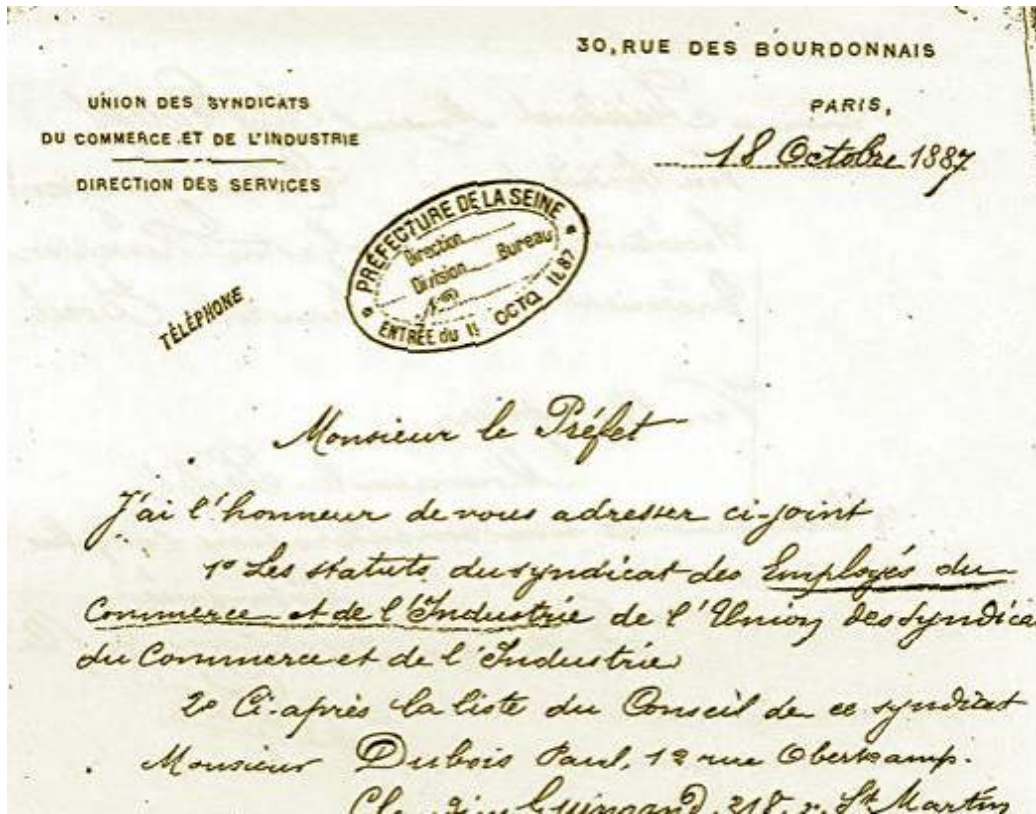 30, RUE DES BOURDONNAIS
UNION DES SYNDICATS
DU COMMERCE ET DE L'INDUSTRIE
DIRECTION DES SERVICES
PARIS,
18 Octobre 1887
PRÉFECTURE DE LA SEINE
Direction
Division Bureau
ENTRÉE DU
TÉLÉPHONE
Monsieur le Préfet
J'ai l'honneur de vous adresser ci-joint
1º Les statuts du syndicat des Employés du
Commerce et de l'Industrie de l'Union des Syndica
du Commerce et de l'Industrie
2º Ci-après la liste du Conseil de ce syndicat
Monsieur Dubois Paul, 12 rue Oberkamp.
Guimand, 218, r. St Martin